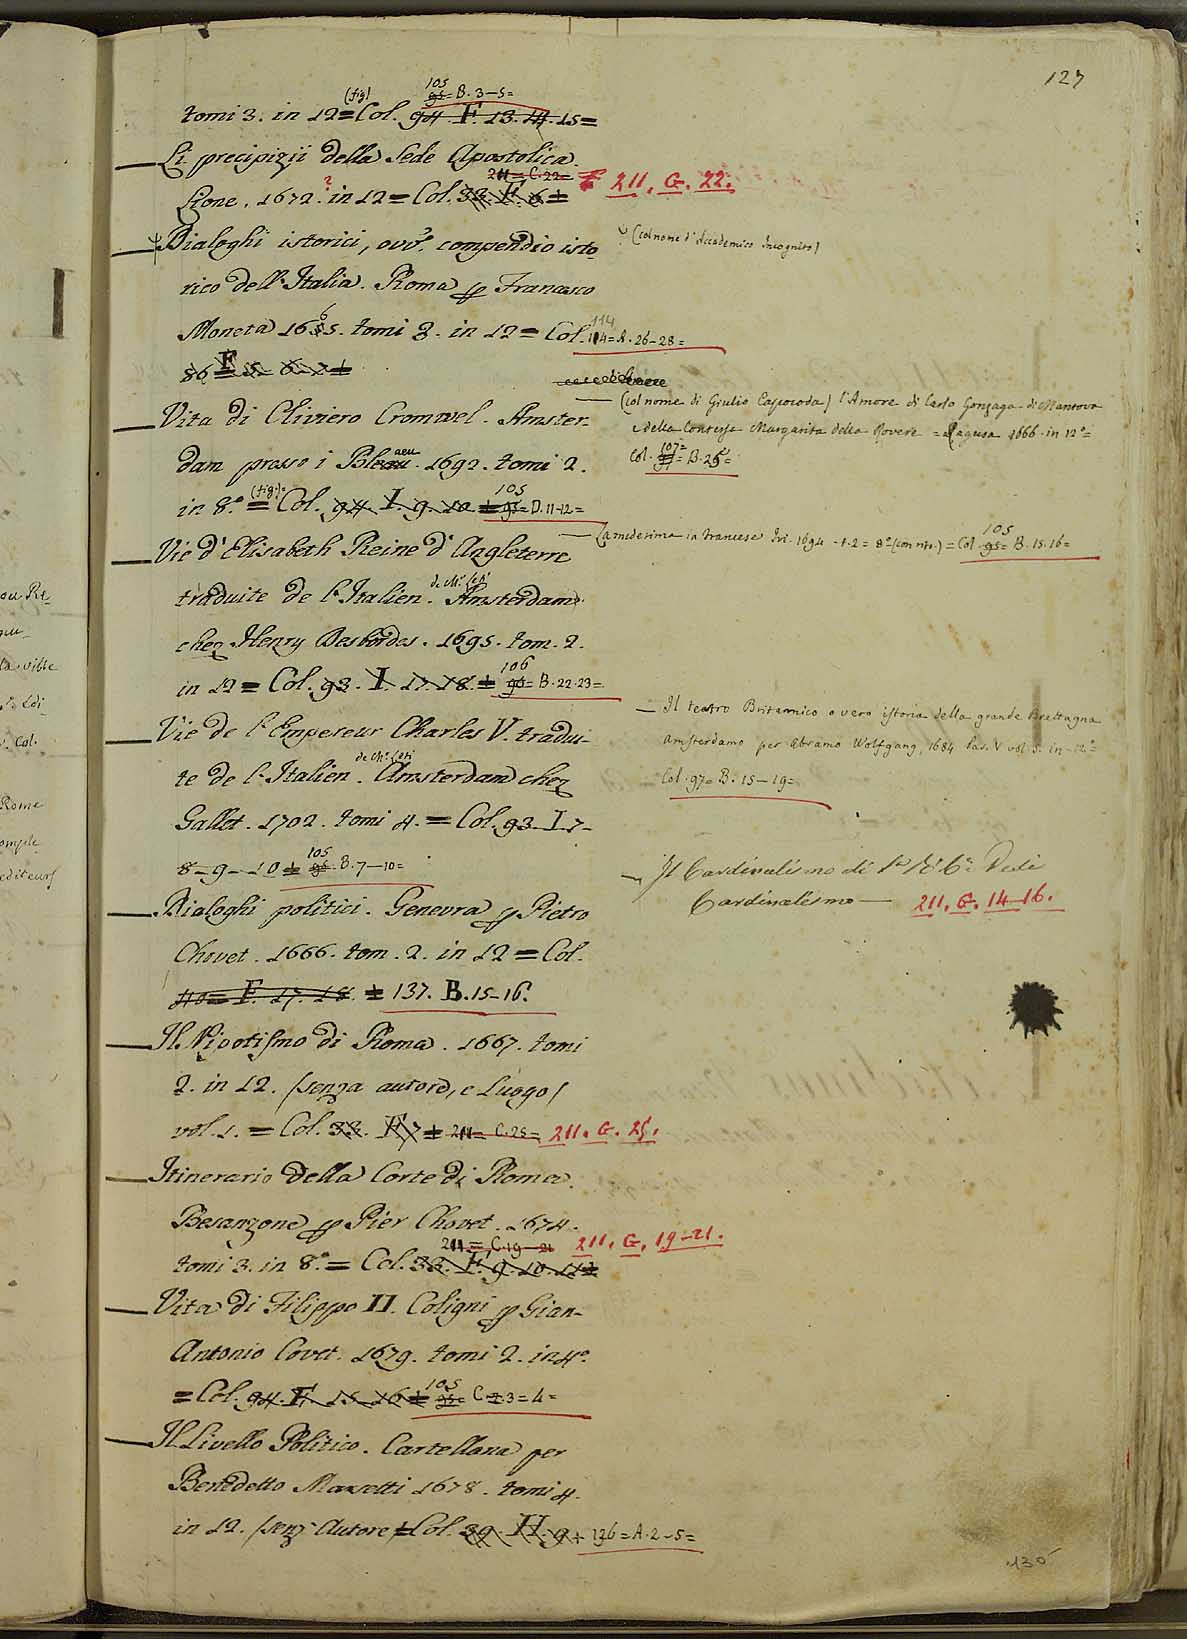 127
(fig) 105 95 = B. 3-5=
tomi 3. in 12 = Col. 94. F. 13. 14. 15=
Li precipizii della Sede Apostolica.
211 = C. 22=
Lione. 1672.? in 12 = Col. 33. F. 6 = 211. G. 22.
Dialoghi istorici, ovv.º compendio isto
(col nome d'Accademico Incognito)
rico dell'Italia. Roma p Francesco
Moneta 1665. tomi 3. in 12 = Col. 114 = A. 26-28=
86 F 5- 6- 7=
Vita di Oliviero Cromvel. Amster-
dam presso i Blaeu. 1692. tomi 2.
in 8.º (fig.) = Col. 94. I. 9. 10. = 105 95 = D. 11-12=
(col nome di Giulio Capocoda) l'Amore di Carlo Gonzaga di Mantova
e della Contessa Margarita della Rovere = Ragusa 1666. in 12º=
Col. 107 = B. 26=
Vie d'Elisabeth Reine d'Angleterre
La medesima in francese Ivi. 1694 - t. 2 = 8º (con rit.) = Col. 105 95 = B. 15. 16=
traduite de l'Italien. de Mr. Leti Amsterdam
chez Henry Desbordes. 1695. tom. 2.
in 12 = Col. 93. I. 17. 18. = 106 96 = B. 22. 23=
Vie de l'Empereur Charles V. tradui-
te de l'Italien. de Mr. Leti Amsterdam chez
Gallet. 1702. tomi 4. = Col. 93. I. 7-
8- 9- 10 = 105 95. B. 7-10=
Il teatro Britannico o vero istoria della grande Brettagna
amsterdamo per Abramo Wolfgang, 1684 Par. V vol. 5. in-12º=
Col. 97= B. 15-19=
Il Cardinalismo di
Cardinalismo — 211. G. 14-16.
Dialoghi politici. Genevra p Pietro
Chovet. 1666. tom. 2. in 12 = Col.
40 = F. 17. 18. = 137. B. 15-16.
Il Nipotismo di Roma. 1667. tomi
2. in 12. (senza autore, e Luogo)
vol. 1. = Col. 33. F. 7 = 211 = C. 25= 211. G. 25.
Itinerario della Corte di Roma.
Besanzone p Pier Chovet. 1674.
211 = C. 19-21 211. G. 19-21.
tomi 3. in 8.º = Col. 33. F. 9. 10. 11=
Vita di Filippo II. Coligni p Gian-
Antonio Covet. 1679. tomi 2. in 4º.
= Col. 94. F. 15. 16 = 105 95 = C. 3=4=
Il Livello Politico. Cartellana per
Benedetto Marsetti 1678. tomi 4.
in 12. (senz' Autore) = Col. 39. H. 9 = 136 = A. 2-5=
130
ou Re-
la ville
Edi-
Col.
Rome
editeurs